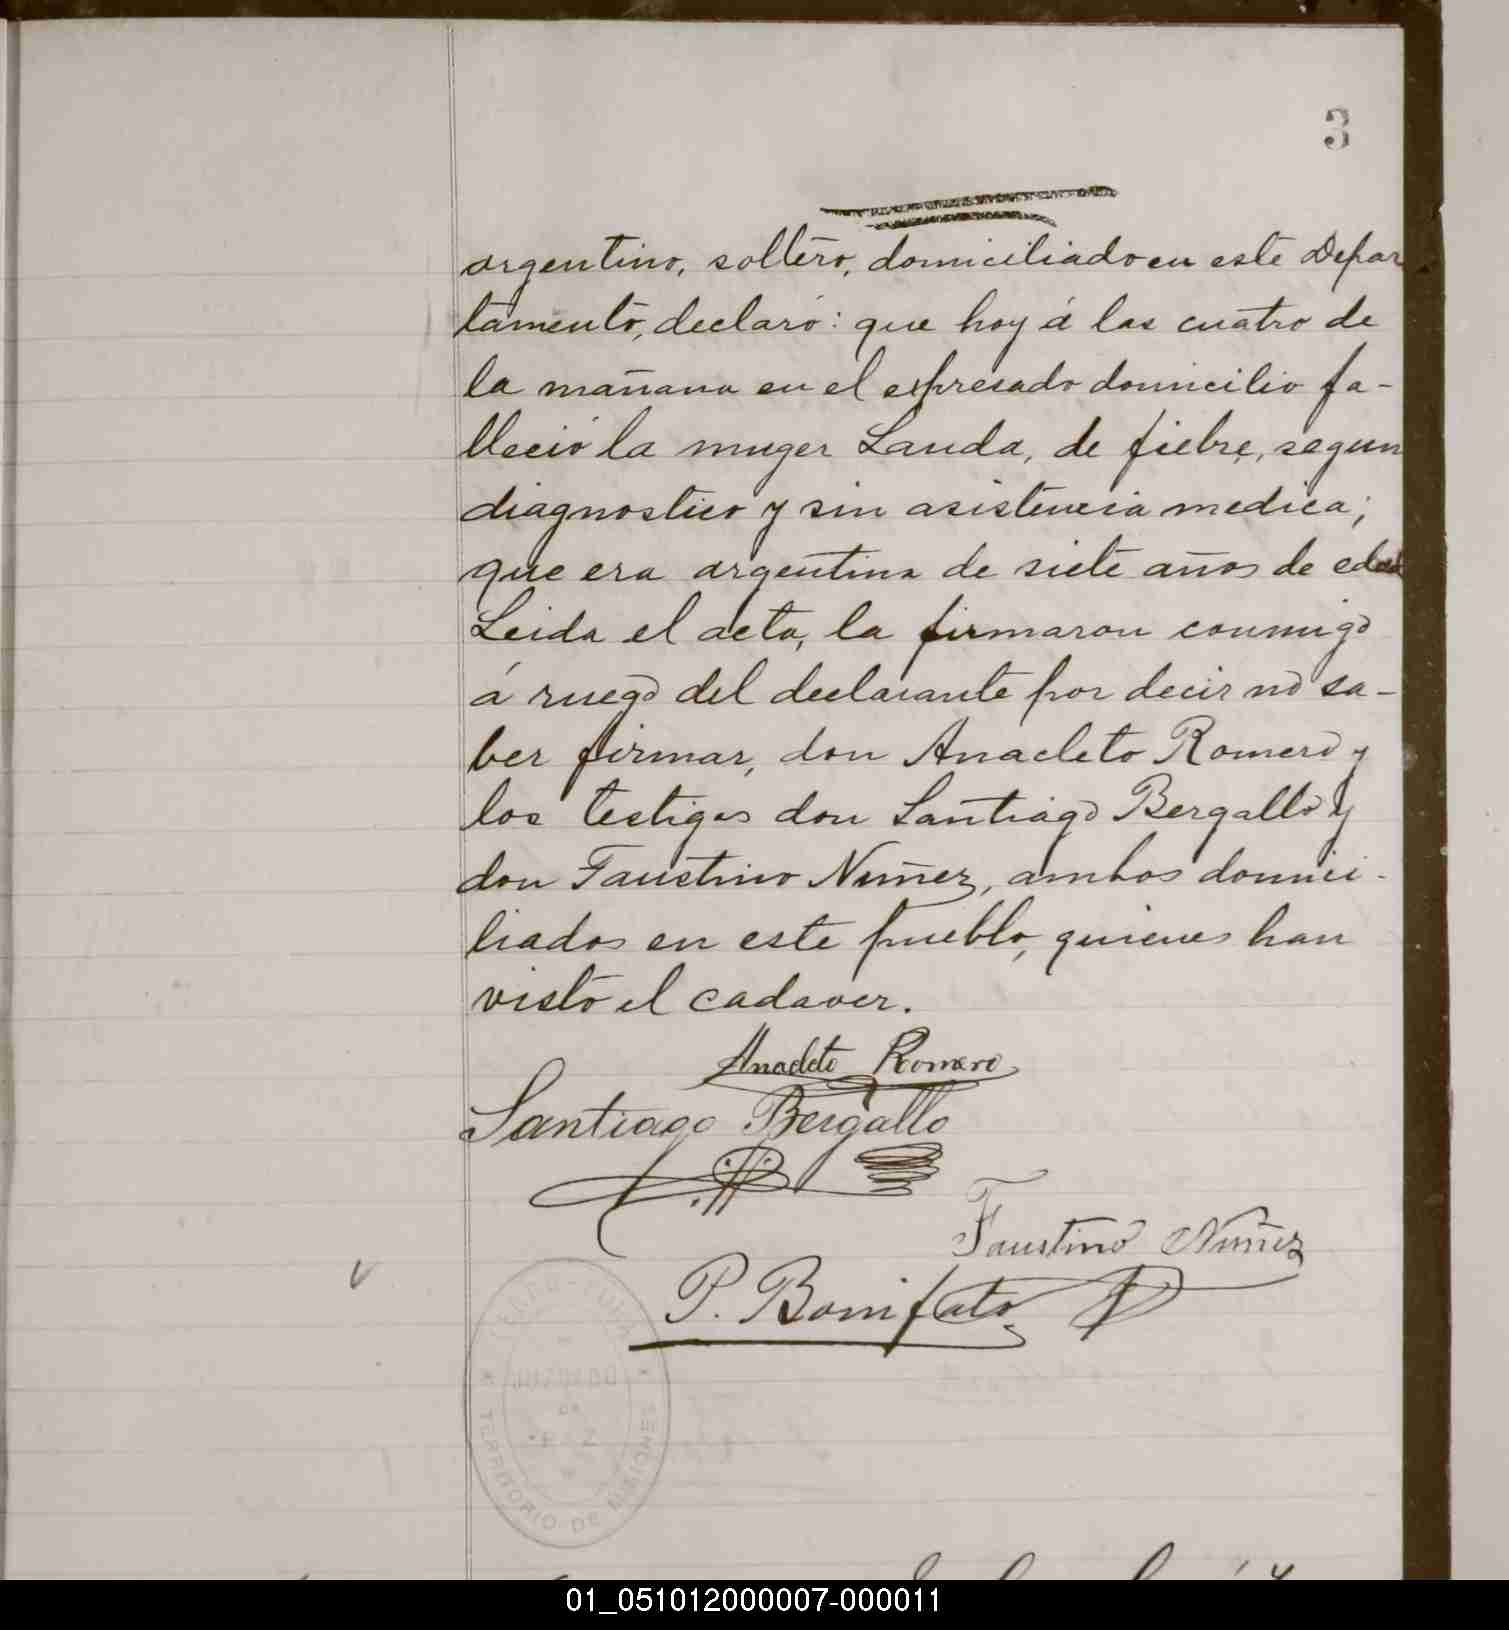 3
argentino, soltero, domiciliado en este Depar
tamento, declaró: que hoy á las cuatro de
la mañana en el expresado domicilio fa-
lleció la muger Landa, de fiebre, segun
diagnostico y sin asistencia medica;
que era argentina de siete años de edad
Leida el acta, la firmaron conmigo
á ruego del declarante por decir no sa-
ber firmar, don Anacleto Romero y
los testigos don Santiago Bergallo y
don Faustino Nuñez, ambos domici-
liados en este pueblo, quienes han
visto el cadaver.
Anacleto Romero
Santiago Bergallo
Faustino Nuñez
P. Bonifato
JUZGADO
DE
PAZ
TERRITORIO DE MISIONES
01_051012000007-000011